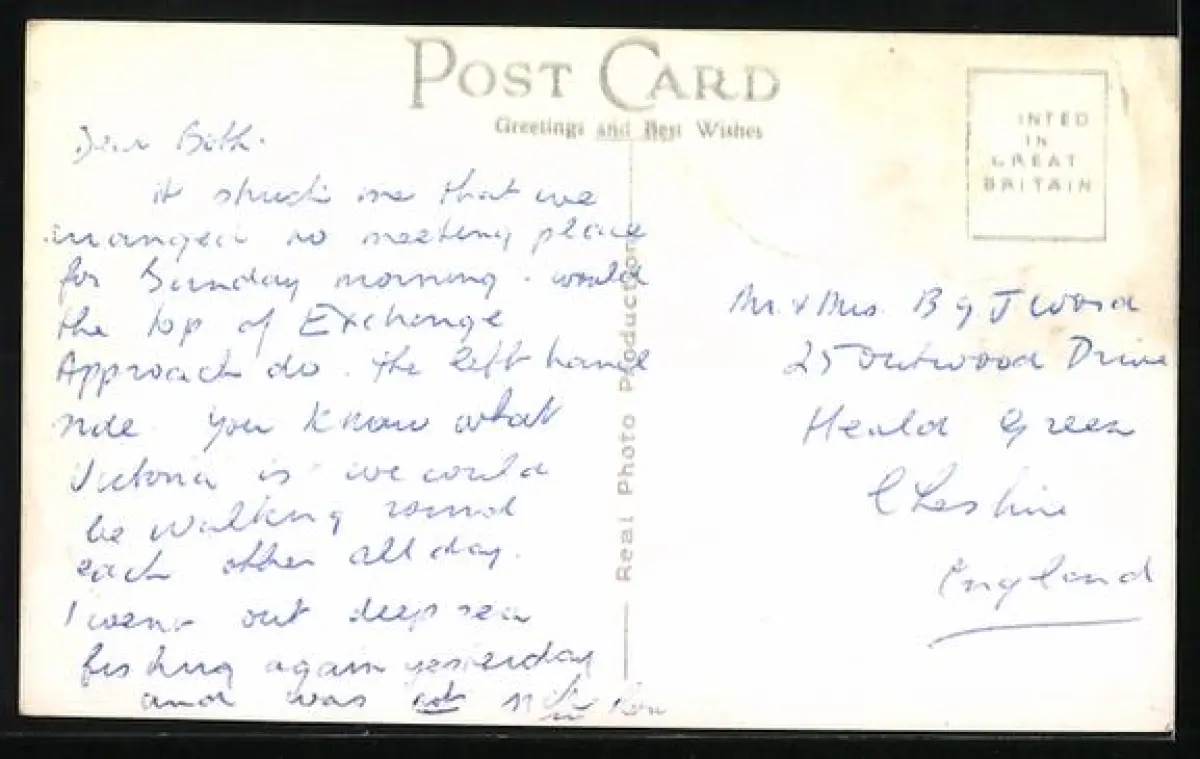 POST CARD
Greetings and Best Wishes
INTED
IN
GREAT
BRITAIN
Dear Both.
it struck me that we
arranged no meeting place
for Sunday morning. would
the top of Exchange
Approach do. the left hand
side. You know what
Victoria is we could
be walking round
each other all day.
I went out deep sea
fishing again yesterday
and was not
Real Photo Production
Mr. & Mrs. B G J Wood
25 Outwood Drive
Heald Green
Cheshire
England